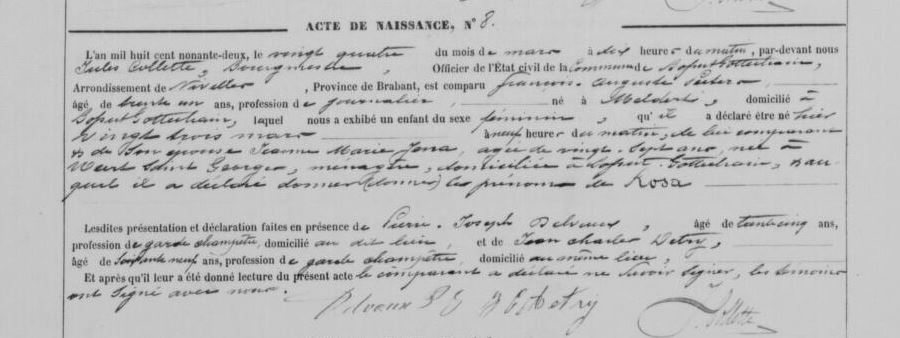 ACTE DE NAISSANCE, N° 8.
L'an mil huit cent nonante-deux, le vingt quatre du mois de mars à dix heures du matin, par-devant nous
Jules Collette, Bourgmestre, Officier de l'État civil de la Commune de
Arrondissement de Nivelles, Province de Brabant, est comparu François-Auguste
âgé, de trente un ans, profession de journalier, né à Meldert, domicilié à
lequel nous a exhibé un enfant du sexe féminin, qu'il a déclaré être né hier
Vingt trois mars à neuf heures du matin, de lui comparant
& de Son épouse Jeanne Marie agée de vingt-Sept ans, née à
Weert Saint Georges, ménagère, domiciliée à & au
quel il a déclaré donner (donner) les prénoms de Rosa
Lesdites présentation et déclaration faites en présence de Pierre-Joseph Delvaux, âgé de trente cinq ans,
profession de garde champêtre, domicilié au dit lieu, et de Jean Charles Detry,
âgé de soixante neuf ans, profession de garde champêtre, domicilié au même lieu,
Et après qu'il leur a été donné lecture du présent acte le comparant a déclaré ne Savoir Signer, les témoins
ont Signé avec nous.
Delvaux P J Detry
J. Collette